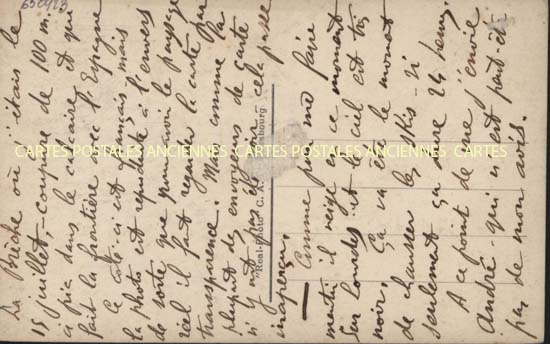 La Brèche où j'étais le
15 juillet, coupure de 100 m.
à pic dans le calcaire et qui
fait la frontière avec l'Espagne
Ce côté-ci est français, mais
la photo est reproduite à l'envers
de sorte que pour voir le paysage
réel il faut regarder la carte par
transparence. Mais comme la
plupart des envoyeurs de carte
n'y ont pas été voir - cela passe
inaperçu.
Comme pour me faire
mentir il neige en ce moment
sur Lourdes et le ciel est très
noir. Ça va être le moment
de chausser les skis - si
seulement ça dure 24 heures.
A ce point de vue j'envie
André - qui n'est peut-être
pas de mon avis.
"Real-Photo" C. A.
Strasbourg
CARTES POSTALES ANCIENNES CARTES POSTALES ANCIENNES CARTES